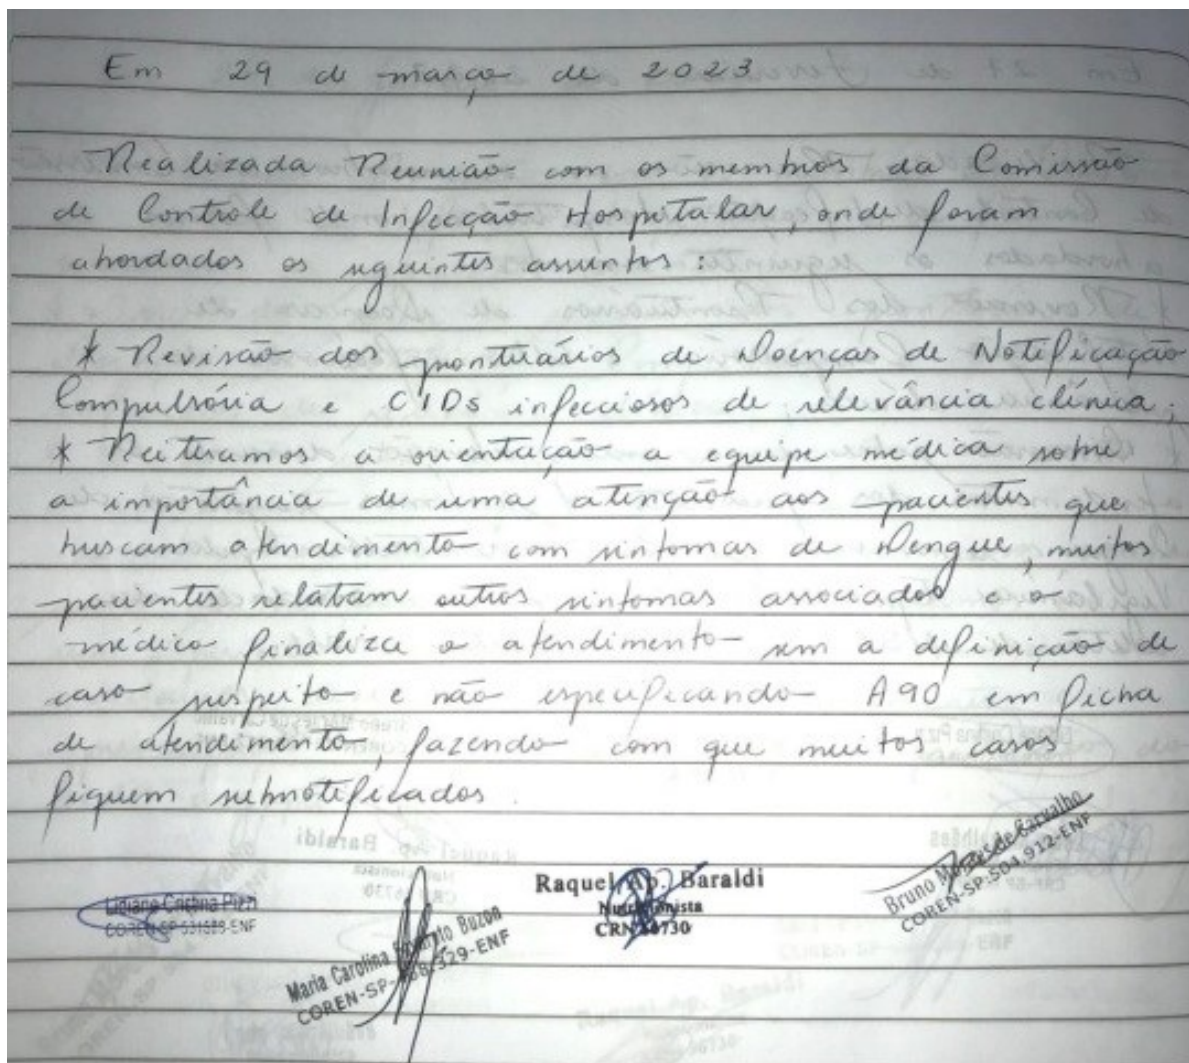 Em 29 de março de 2023
Realizada Reunião com os membros da Comissão
de Controle de Infecção Hospitalar, onde foram
abordados os seguintes assuntos:
* Revisão dos prontuários de Doenças de Notificação
Compulsória e CIDs infecciosos de relevância clínica;
* Reiteramos a orientação a equipe médica sobre
a importância de uma atenção aos pacientes que
buscam atendimento com sintomas de Dengue, muitos
pacientes relatam outros sintomas associados e o
médico finaliza o atendimento sem a definição de
caso suspeito e não especificando A90 em ficha
de atendimento, fazendo com que muitos casos
fiquem subnotificados.
Lidiane Cristina Pizzi
COREN-SP 531688-ENF
Maria Carolina Buzon
COREN-SP 329-ENF
Raquel Ap. Baraldi
Nutricionista
CRN
Bruno de Carvalho
COREN-SP:504.912-ENF